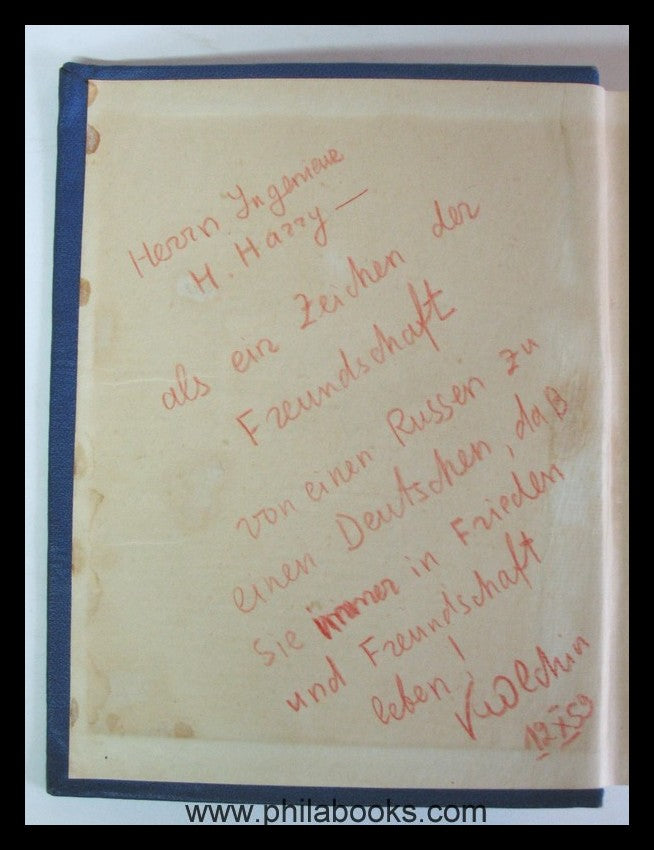 Herrn Ingenieur
H. Harry —
als ein Zeichen der
Freundschaft
von einen Russen zu
einen Deutschen, daß
Sie immer in Frieden
und Freundschaft
leben!
12 X 59
www.philabooks.com